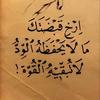 إرخِ قبضتك
ما لا يحفظه الودّ
لا تبقيه القوة!